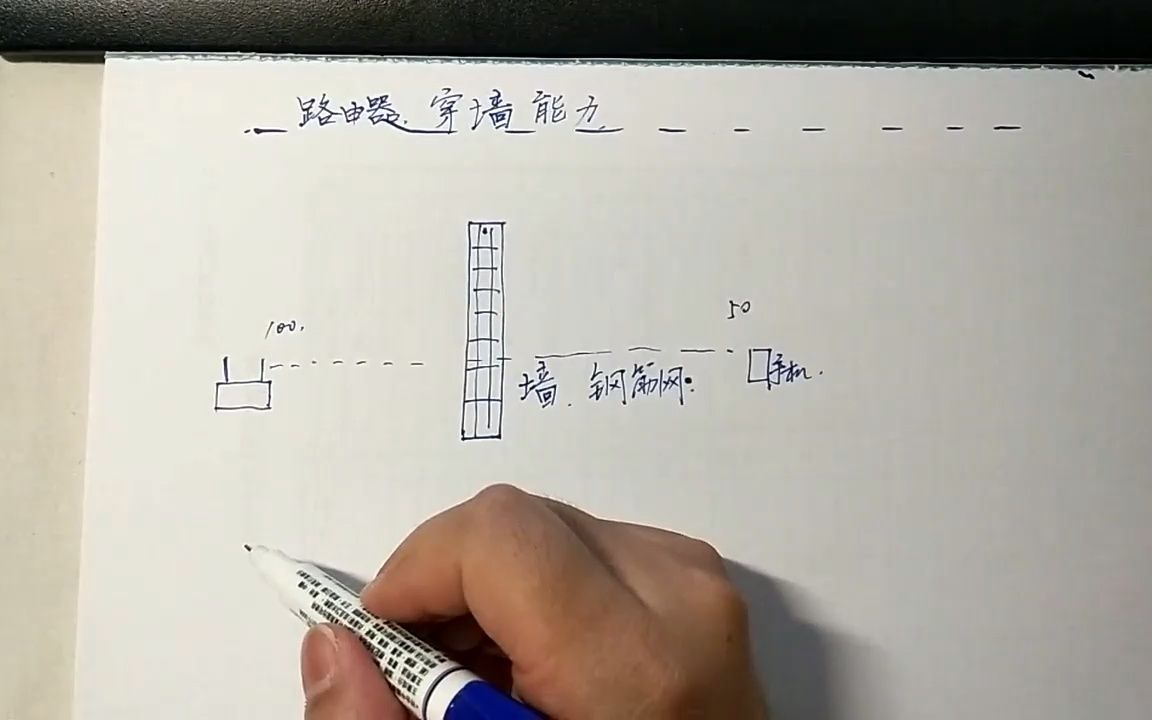 路由器.穿墙能力
100.
50
墙.钢筋网.
手机.